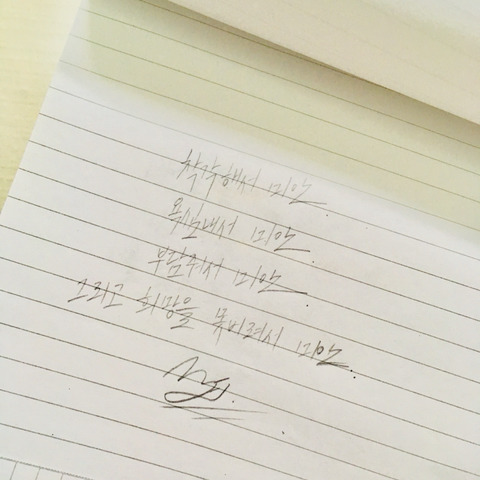 착각해서 미안.
욕심내서 미안.
부담줘서 미안.
그리고 희망을 못버려서 미안.